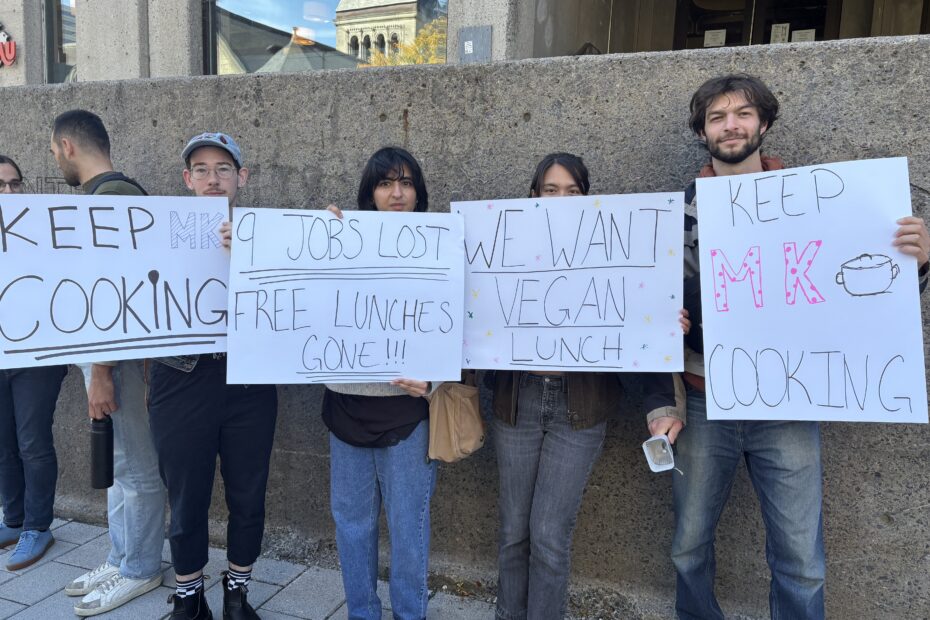 KEEP MK
COOKING
9 JOBS LOST
FREE LUNCHES
GONE!!!
WE WANT
VEGAN
LUNCH
KEEP
MK
COOKING